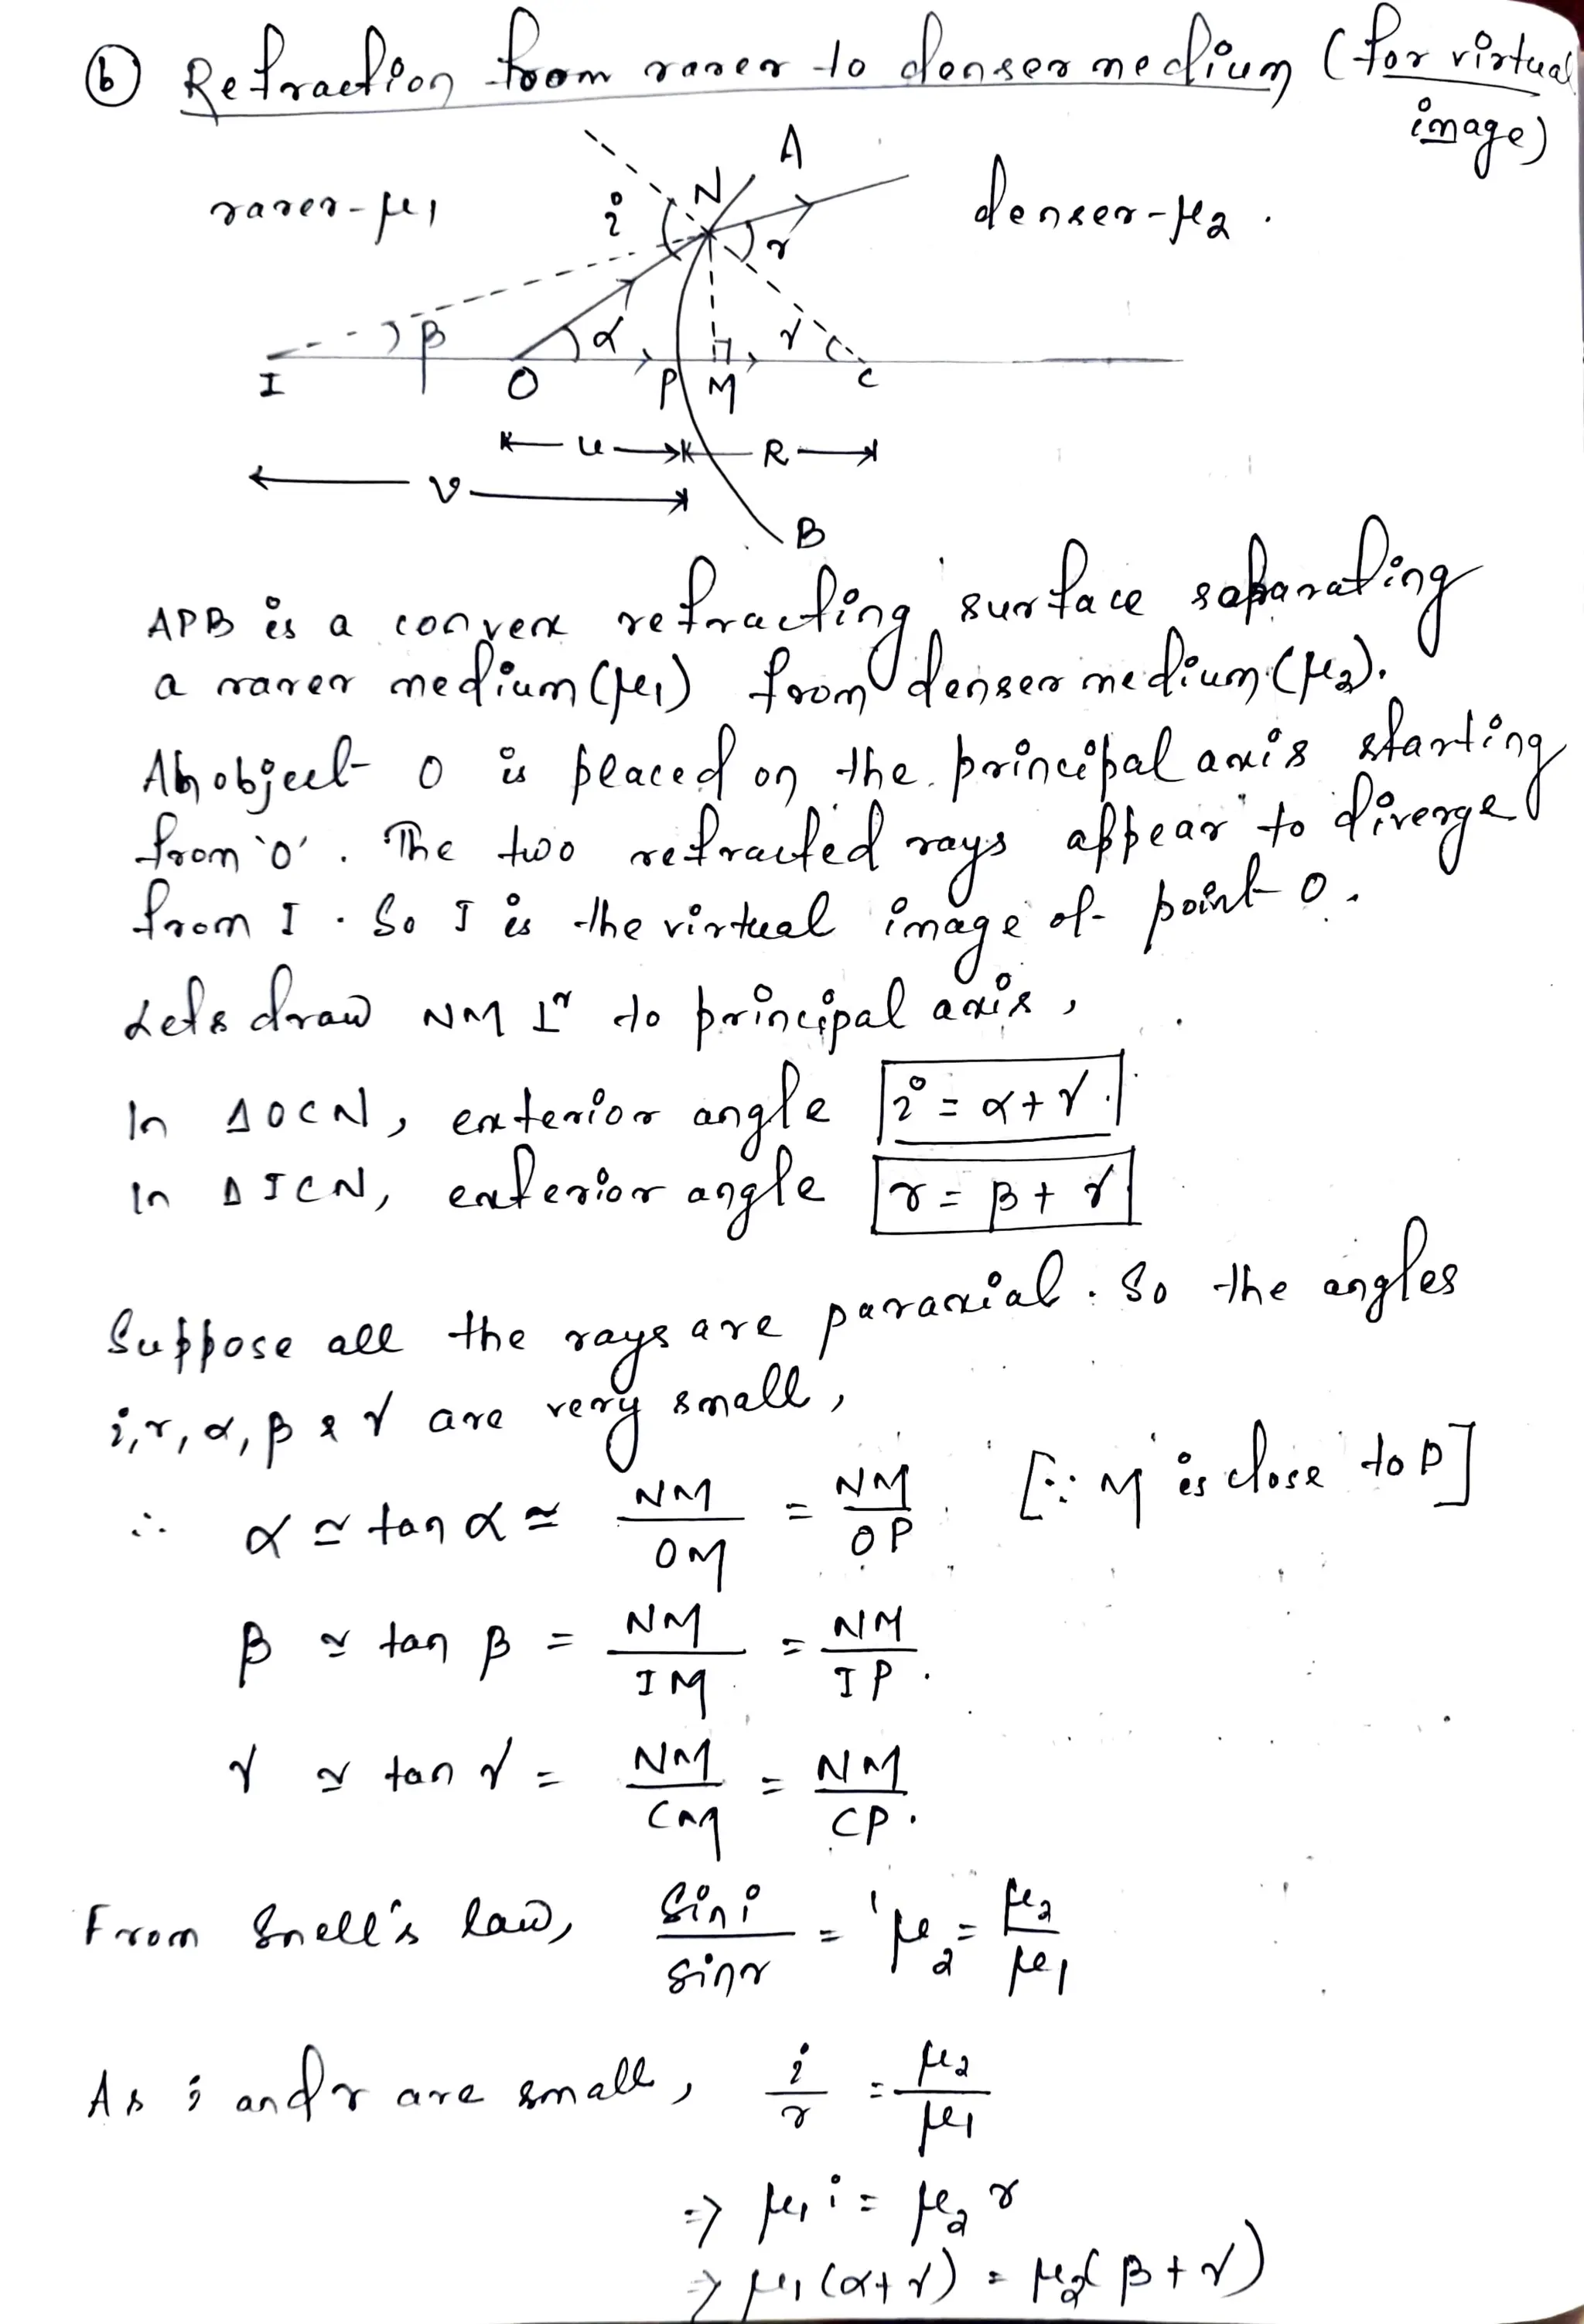 (b) Refraction from rarer to denser medium (for virtual
image)
A
rarer-μ1
i
N
denser-μ2.
r
β
α
γ
I
O
P
M
C
u
R
v
B
APB is a convex refracting surface saparating
a rarer medium (μ1) from denser medium (μ2).
An object O is placed on the principal axis starting
from 'O'. The two refracted rays appear to diverge
from I. So I is the virtual image of point O.
Lets draw NM ⊥r to principal axis,
In ΔOCN, exterior angle i = α + γ.
In ΔICN, exterior angle r = β + γ
Suppose all the rays are paraxial. So the angles
i, r, α, β & γ are very small,
∴ α ≃ tan α ≃ NM/OM = NM/OP. [∵ M is close to P]
β ≃ tan β = NM/IM = NM/IP.
γ ≃ tan γ = NM/CM = NM/CP.
From Snell's law, sin i/sin r = ¹μ₂ = μ2/μ1
As i and r are small, i/r = μ2/μ1
⇒ μ1 i = μ2 r
⇒ μ1 (α + γ) = μ2 (β + γ)